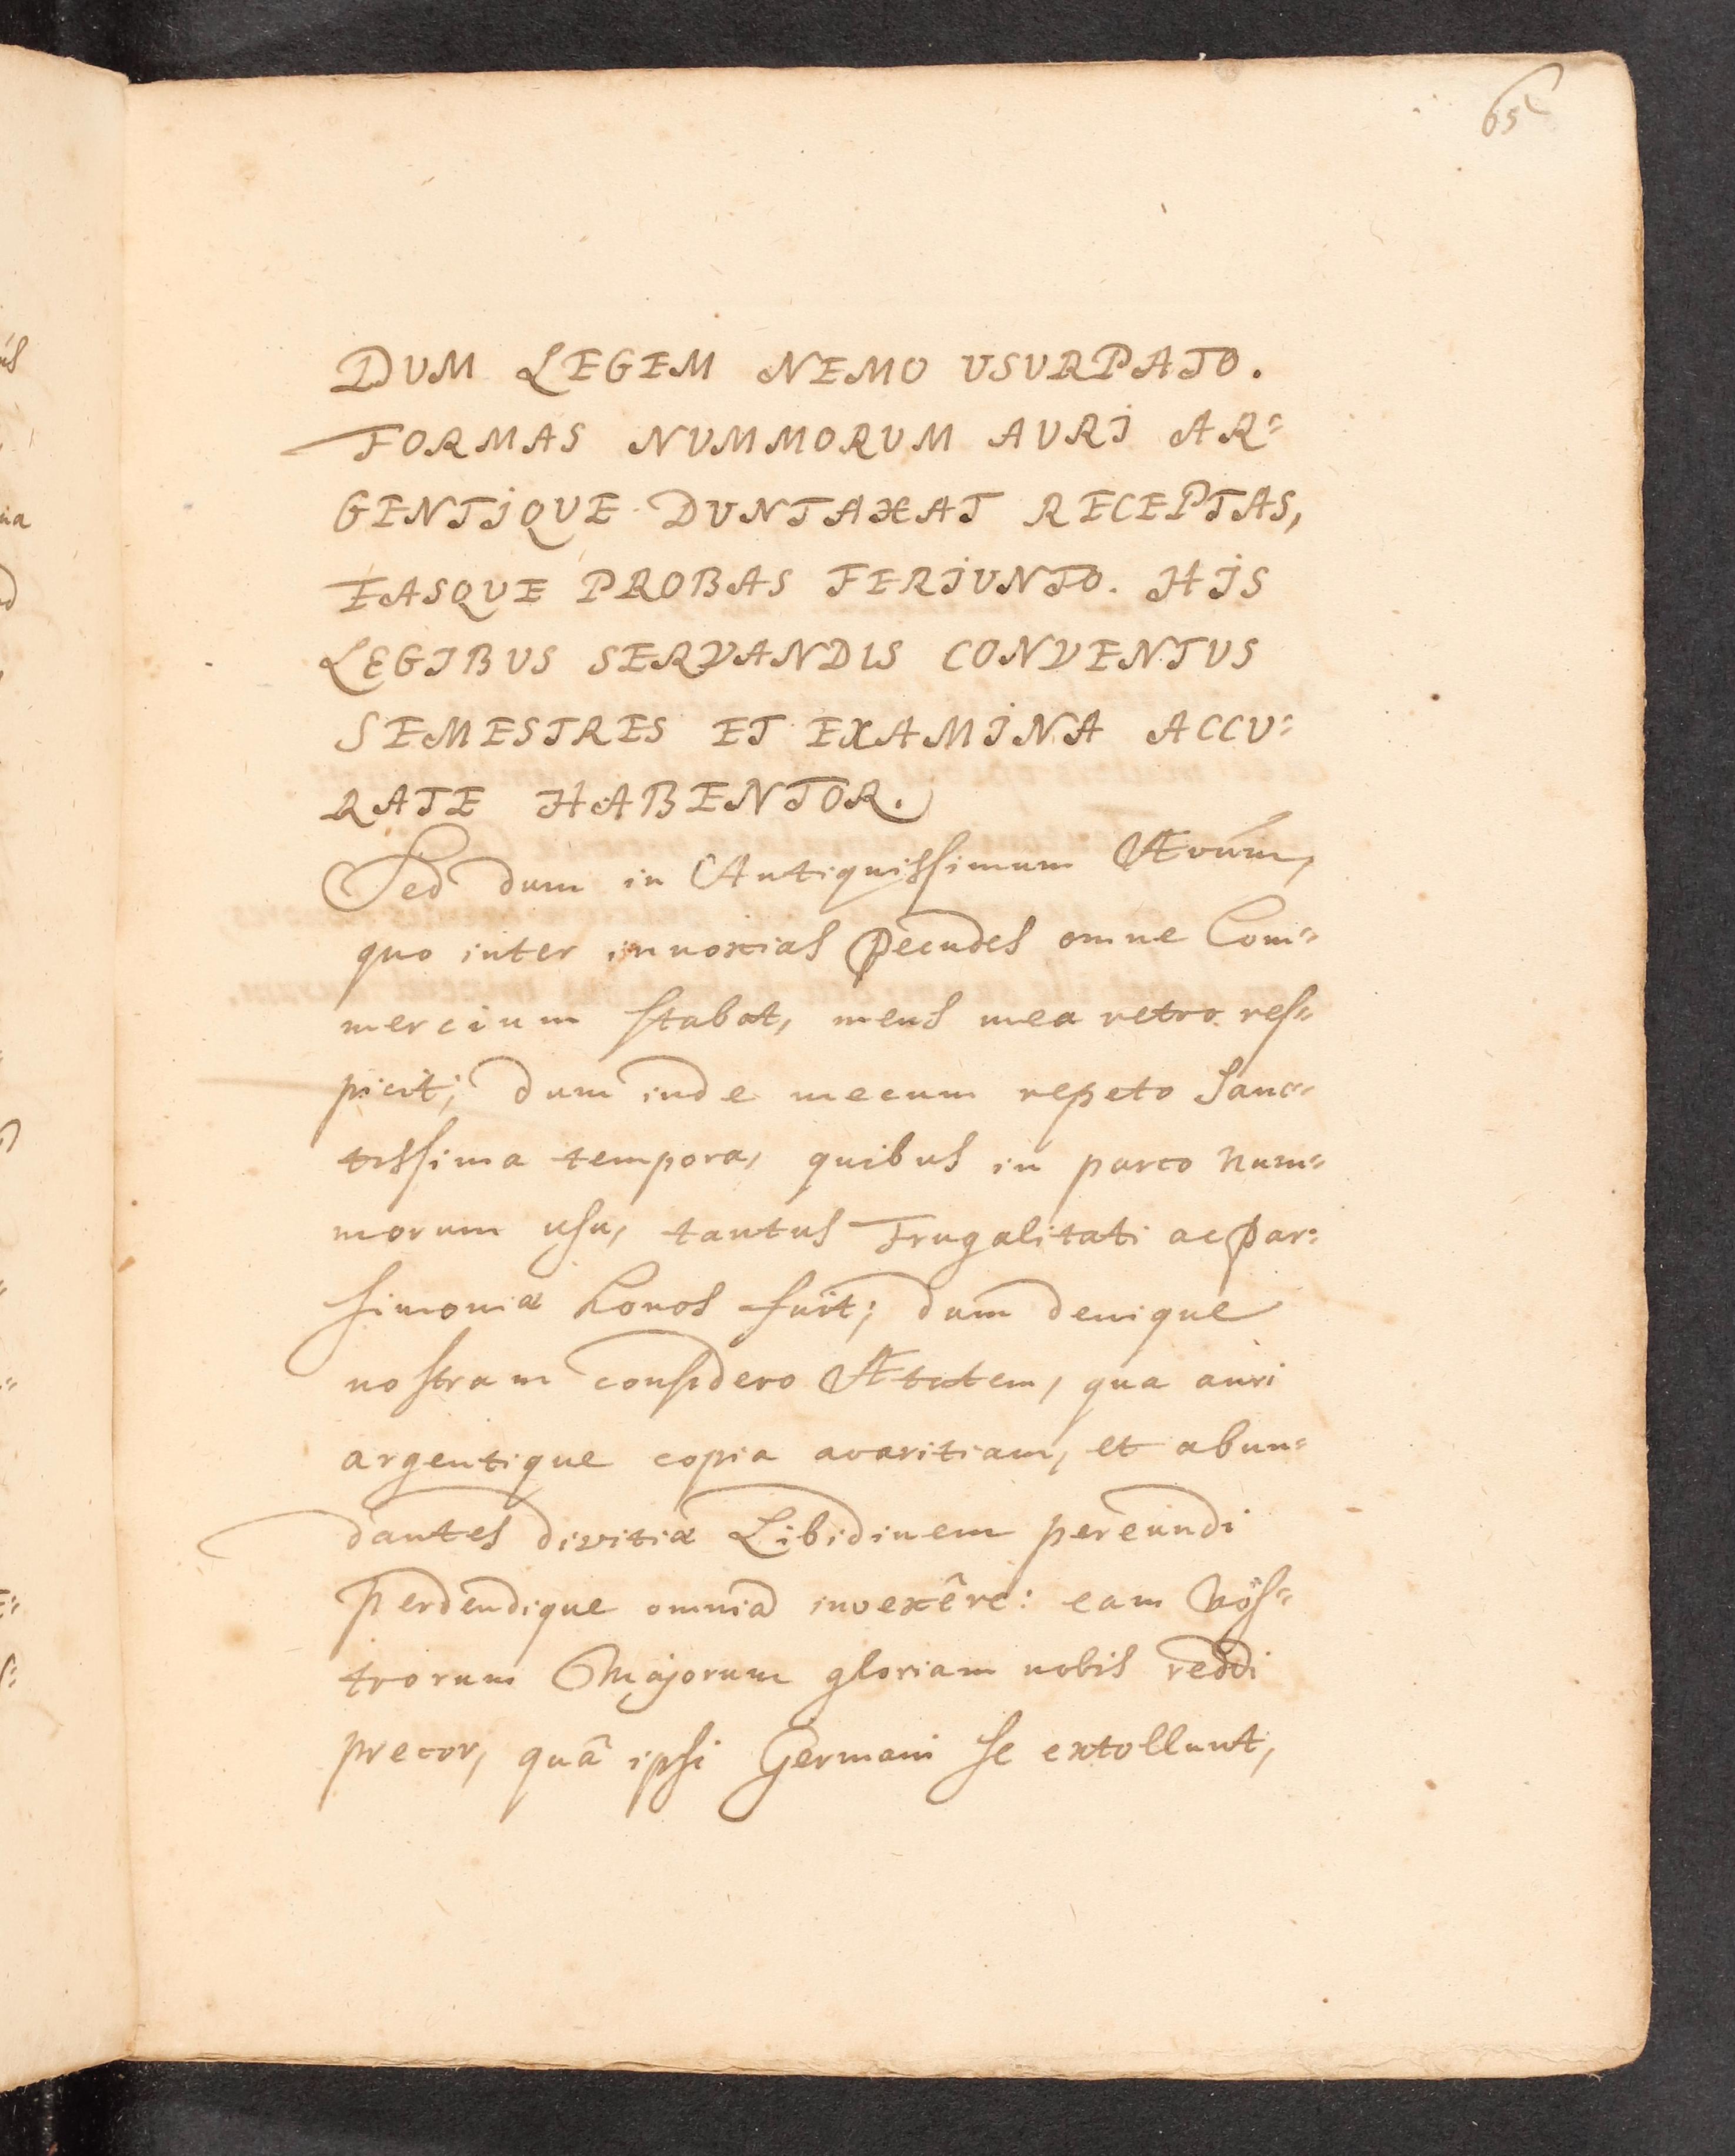 65
DUM LEGEM NEMO USURPATO.
FORMAS NUMMORUM AURI AR=
GENTIQUE DUNTAXAT RECEPTAS,
EASQUE PROBAS FERIUNTO. HIS
LEGIBUS SERVANDIS CONVENTUS
SEMESTRES ET EXAMINA ACCU=
RATE HABENTOR.
Sed dum in Antiquissimum Ævum,
quo inter innoxias Pecudes omne Com=
mercium stabat, mens mea retro res=
picit; dum inde mecum repeto Sanc=
tissima tempora, quibus in parco Num=
morum usu, tantus Frugalitati ac Par=
simoniæ honos fuit; dum denique
nostram considero Ætatem, qua auri
argentique copia avaritiam, et abun=
dantes divitiæ Libidinem pereundi
perdendique omnia invexêre: eam Nos=
trorum Majorum gloriam nobis reddi
precor, quâ ipsi Germani se extollunt,